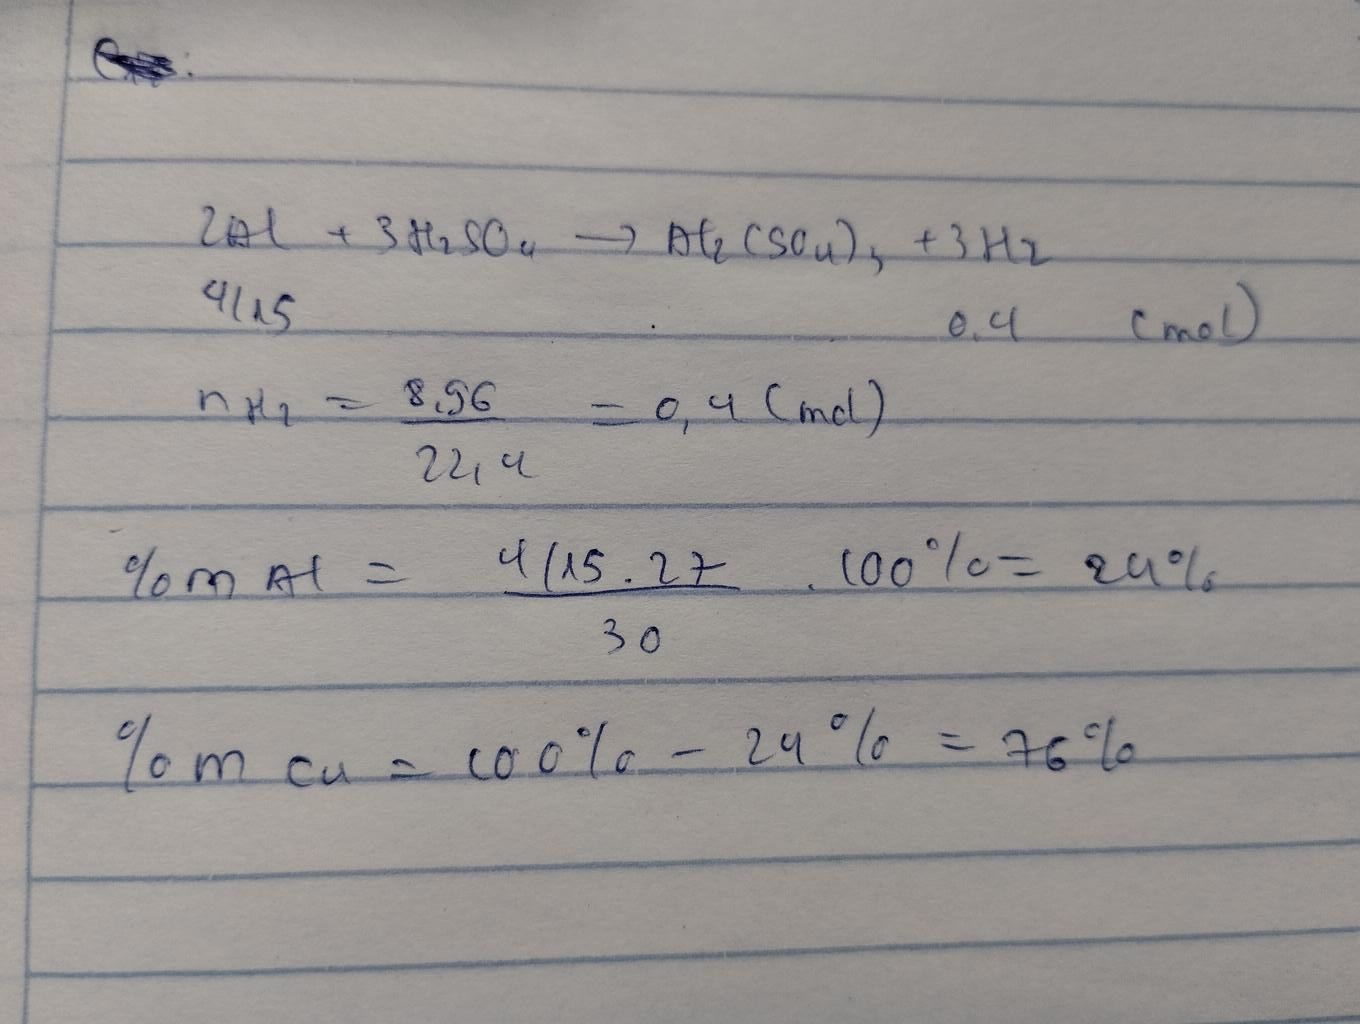 2Al + 3H₂SO₄ → Al₂(SO₄)₃ + 3H₂
4/15 0.4 (mol)
nH₂ = 8,96 / 22,4 = 0,4 (mol)
%m Al = 4/15.27 / 30 . 100% = 24%
%m Cu = 100% - 24% = 76%